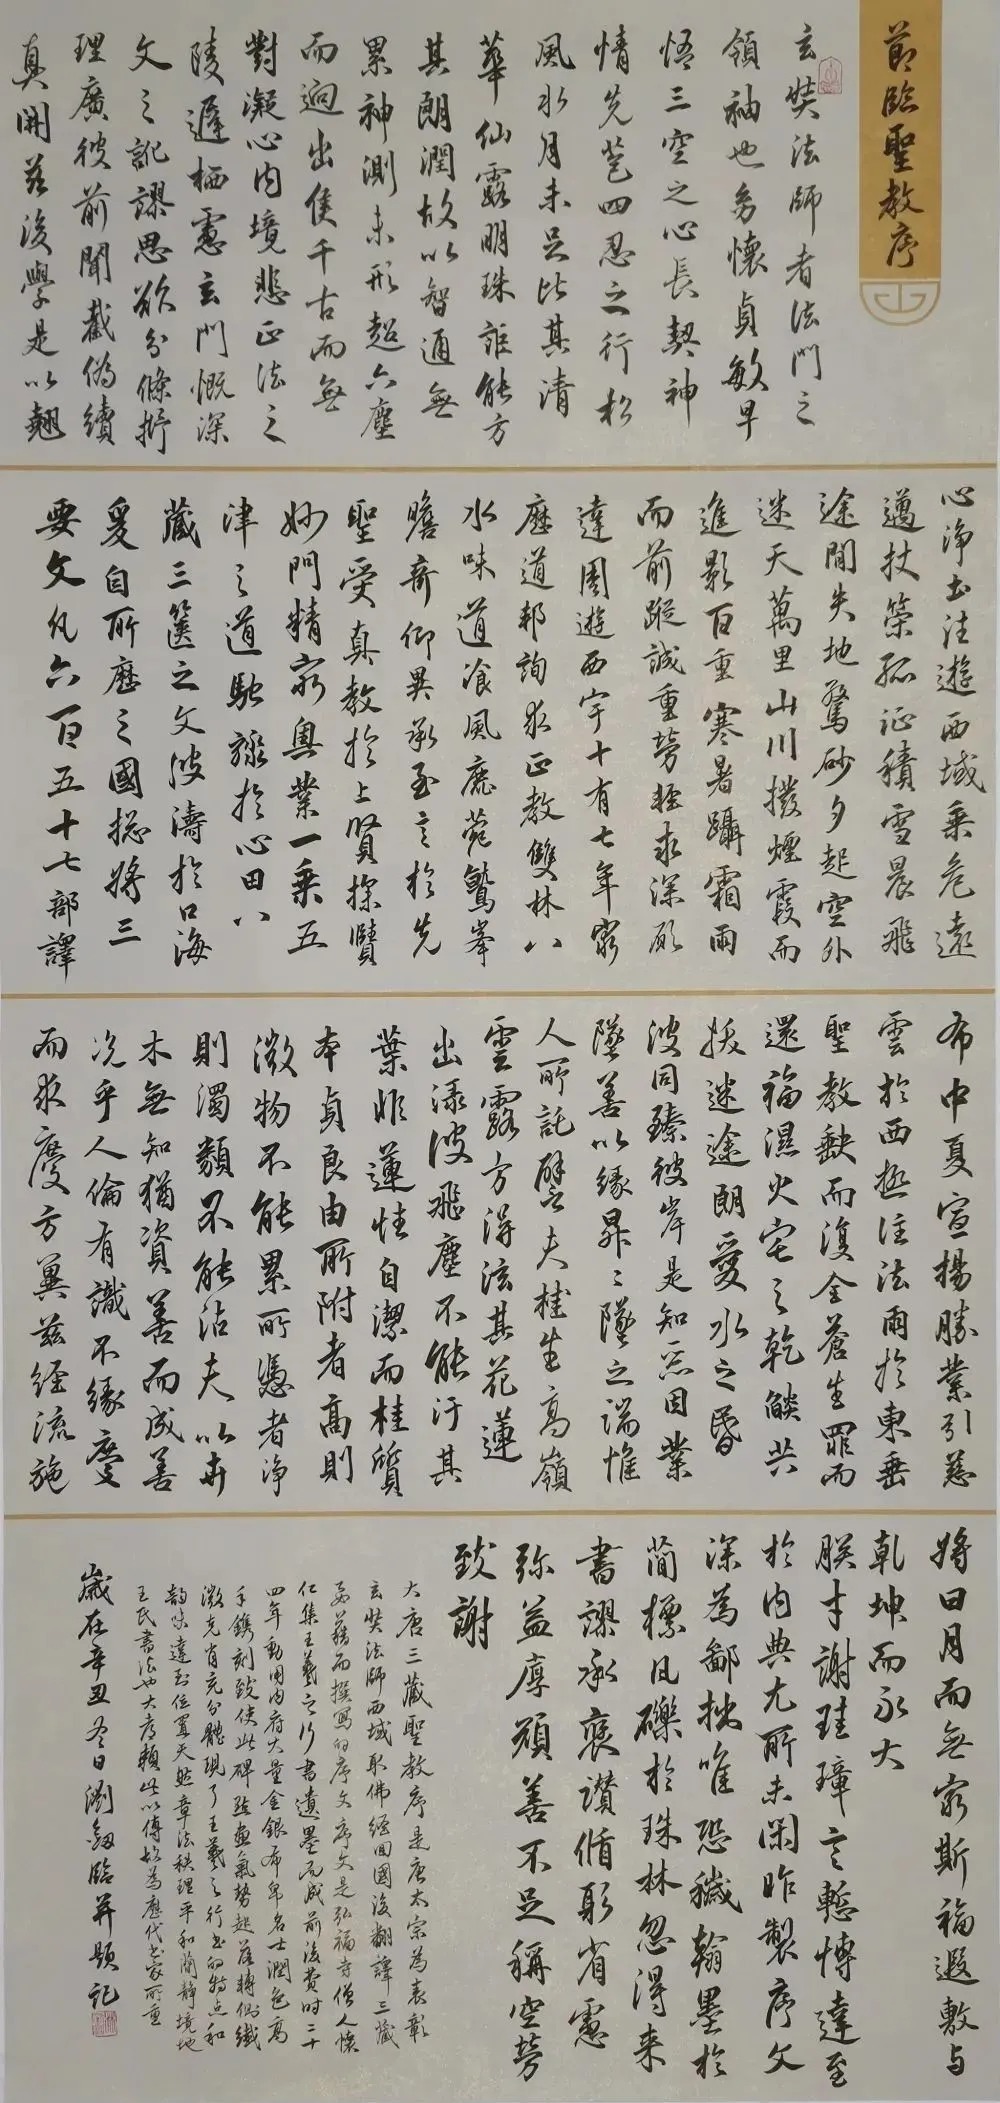 節臨聖教序
玄奘法師者法門之
領袖也幼懷貞敏早
悟三空之心長契神
情先苞四忍之行松
風水月未足比其清
華仙露明珠詎能方
其朗潤故以智通無
累神測未形超六塵
而迥出隻千古而無
對凝心內境悲正法之
陵遲栖慮玄門慨深
文之訛謬思欲分條析
理廣彼前聞截偽續
真開茲後學是以翹
心淨土法遊西域乘危遠
邁杖策孤征積雪晨飛
途間失地驚砂夕起空外
迷天萬里山川撥煙霞而
進影百重寒暑躡霜雨
而前蹤誠重勞輕求深願
達周遊西宇十有七年窮
歷道邦詢求正教雙林八
水味道飡風鹿菀鷲峯
瞻奇仰異承至言於先
聖受真教於上賢探賾
妙門精窮奧業一乘五
津之道馳驟於心田八
藏三篋之文波濤於口海
爰自所歷之國捴將三
藏要文凡六百五十七部譯
布中夏宣揚勝業引慈
雲於西極注法雨於東垂
聖教缺而復全蒼生罪而
還福濕火宅之乾燄共
拔迷途朗愛水之昏
波同臻彼岸是知惡因業
墜善以緣昇昇墜之端惟
人所託譬夫桂生高嶺
雲露方得泫其花蓮
出淥波飛塵不能汙其
葉非蓮性自潔而桂質
本貞良由所附者高則
微物不能累所憑者淨
則濁類不能沾夫以卉
木無知猶資善而成善
況乎人倫有識不緣慶
而求慶方冀茲經流施
將日月而無窮斯福遐敷与
乾坤而永大
朕才謝珪璋言慙博達至
於內典尤所未閑昨製序文
深為鄙拙唯恐穢翰墨於
簡標瓦礫於珠林忽得来
書謬承褒讃循躬省慮
弥益厚顏善不足稱空勞
致謝
大唐三藏聖教序是唐太宗為表彰
玄奘法師西域取佛經回國後翻譯三藏
要籍而撰寫的序文序文是弘福寺僧人懷
仁集王羲之行書遺墨而成前後費時二十
四年動用內府大量金銀布帛名士潤色高
手鐫刻致使此碑點畫氣勢起落轉側纖
微克肖充分體現了王羲之行书的特点和
韵味達到位置天然章法秩理平和蘭靜境地
王氏書法也大都賴此以傳故為歷代书家所重
歲在辛丑冬日劉劍臨並題記